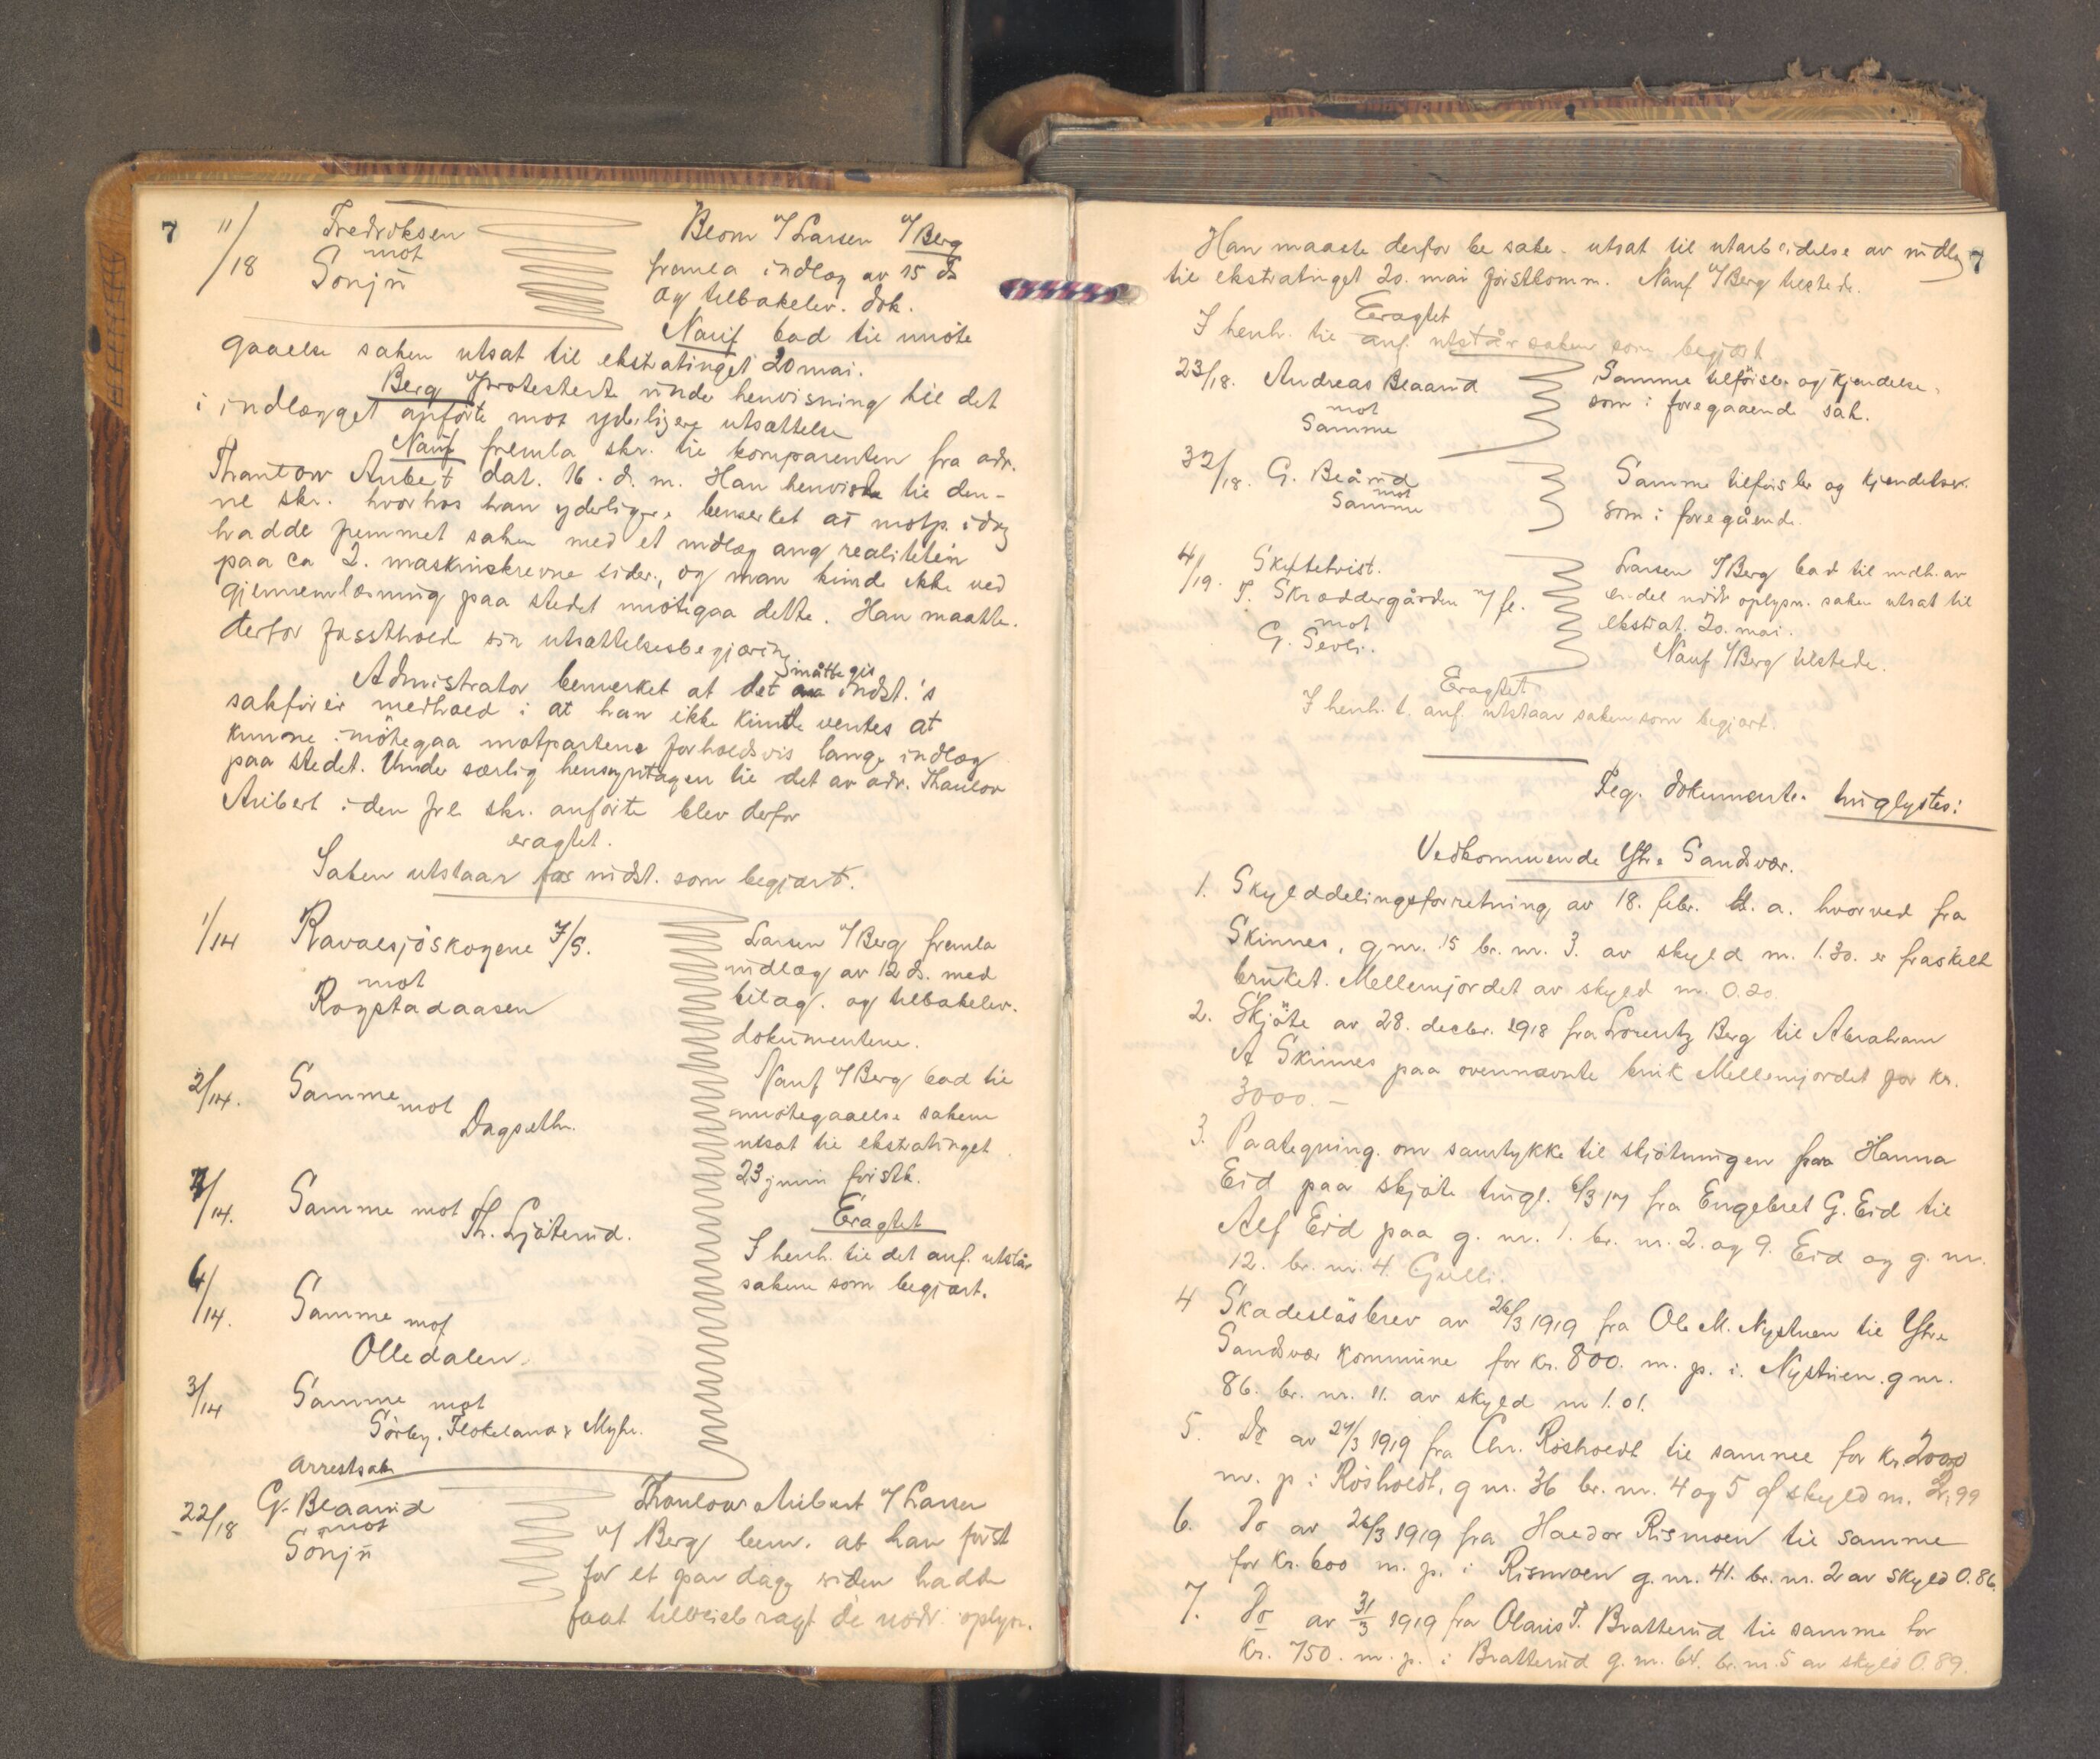 7
11/18 Fredriksen
mot
Sönjü
Blom v/ Larsen v/ Berg
fremla indlæg av 15 ds
og tilbakelev. dok.
Nauf bad til imöte
gaaelse saken utsat til ekstratinget 20 mai.
Berg protesterte under henvisning til det
i indlægget anförte mot yderligere utsættelse
Nauf fremla skr. til komparenten fra adv.
Thaulow Aubert dat. 16. d. m. Han henviste til den-
ne skr. hvorhos han yderligere bemerket at motp. idag
hadde fremmet saken med et indlæg ang realiteten
paa ca 2. maskinskrevne sider, og man kunde ikke ved
gjennemlæsning paa stedet imötegaa dette. Han maatte
derfor fastholde sin utsættelsesbegjæring
Admistrator bemerket at det måtte gis indst.'s
sakförer medhold i at han ikke kunde ventes at
kunne imötegaa motpartens forholdsvis lange indlæg
paa stedet. Under særlig hensyntagen til det av adv. Thaulow
Aubert i den frl. skr. anförte blev derfor
eragtet.
Saken utstaar for indst. som begjært.
1/14 Ravalsjöskogene I/S.
mot
Rogstadaasen
Larsen v/ Berg fremla
indlæg av 12 ds. med
bilag. og tilbakelev.
dokumentene.
2/14. Samme mot
Dagseth.
Nauf v/ Berg bad til
imötegaaelse sakene
utsat til ekstratinget
23 juni förstk.
7/14. Samme mot
Th. Ljöterud.
Eragtet
I henh. til det anf. utstår
sakene som begjært.
6/14. Samme mot
Olledalen.
3/14 Samme mot
Sörby, Flokeland & Myhr.
Arrestsak
22/18 G. Blaarud
mot
Sönjü
Thaulow Aubert v/ Larsen
v/ Berg bem. at han först
for et par dage siden hadde
faat tilveiebragt de nödv. oplysn.
7
Han maatte derfor be sake. utsat til utarbeidelse av indlæg
til ekstratinget 20. mai förstkomm. Nauf v/ Berg tilstede.
Eragtet
I henh. til anf. utstår saken som begjært
23/18. Andreas Blaarud
mot
Samme
Samme tilförsler og kjendelse
som i foregaaende sak.
32/18. G. Blårud
mot
Samme
Samme tilförsler og kjendelser
som i foregående.
4/19. Skiftetvist.
T. Skræddergården m/ fl.
mot
G. Sevli.
Larsen v/ Berg bad til indh. av
en del nödv oplysn. saken utsat til
ekstrat. 20. mai.
Nauf v/ Berg tilstede.
Eragtet
I henh. t. anf. utstaar saken som begjært.
Feg. dokumenter tinglystes:
Vedkommende Ytre Sandsvær.
1. Skylddelingsforretning av 18. febr. d. a. hvorved fra
Skinnes, g. nr. 15 br. nr. 3. av skyld m. 1.30. er fraskilt
bruket. Mellemjordet av skyld m. 0.20.
2. Skjöte av 28. decbr. 1918 fra Lorentz Berg til Abraham
A Skinnes paa ovennævnte bruk Mellemjordet for kr.
3000.-
3. Paategning om samtykke til skjötningen fra Hanna
Eid paa skjöte tingl. 6/3 17 fra Engebret G. Eid til
Alf Eid paa g. nr. 1. br. nr. 2. og 9. Eid og g. nr.
12. br. nr. 4. Gulli.
4 Skadeslösbrev av 26/3 1919 fra Ole M. Nystuen til Ytre
Sandsvær kommune for kr. 800. m. p. i. Nystuen. g nr.
86. br. nr. 11. av skyld m 1.01.
5. Do av 24/3 1919 fra Chr. Rösholdt til samme for kr 2000
m. p i Rösholdt, g nr. 36 br. nr. 4 og 5 af skyld m. 2,99
6. Do av 26/3 1919 fra Haldor Rismoen til samme
for kr. 600 m. p. i Rismoen g. nr. 41. br. nr. 2 av skyld 0.86.
7. Do av 31/3 1919 fra Olaus T. Bratterud til samme for
kr. 750. m. p. i Bratterud g. nr. 64. br. nr. 5 av skyld 0.89.